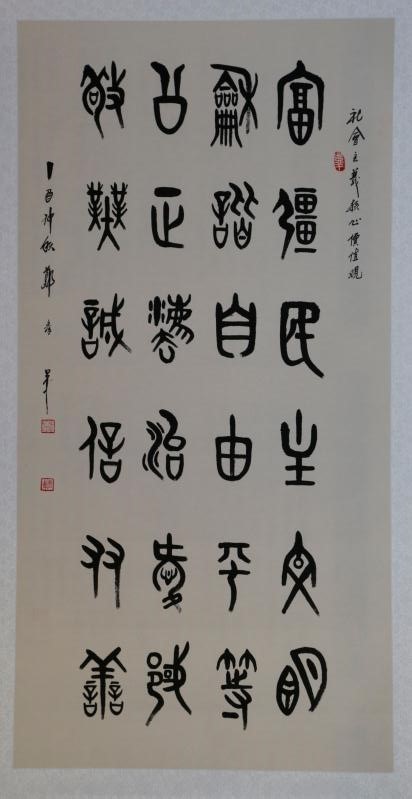 社會主義核心價值觀
富彊民主文明
龢諧自由平等
公正灋治愛國
敬業誠信友譱
丁酉仲秋鄭